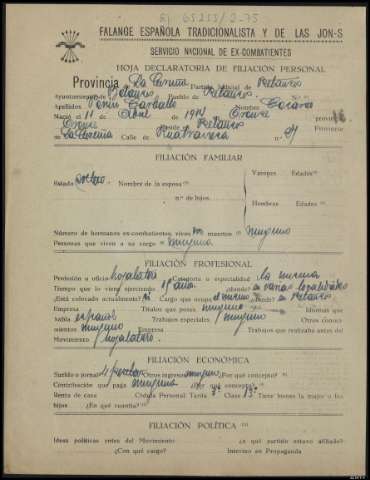 FALANGE ESPAÑOLA TRADICIONALISTA Y DE LAS JON-S
SERVICIO NACIONAL DE EX-COMBATIENTES
HOJA DECLARATORIA DE FILIACIÓN PERSONAL
Provincia La Coruña Partido Judicial de Betanzos
Ayuntamiento de Betanzos Pueblo de Betanzos
Apellidos Carballo Nombre
Nació el 11 de Abril de Orense
Orense Reside Betanzos Provincia
La Coruña Calle de Ruatraviesa n.º
FILIACIÓN FAMILIAR
Estado soltero Nombre de la esposa
Varones Edades
n.º de hijos
Hembras Edades
Número de hermanos ex-combatientes, vivos muertos ninguno
Personas que viven a su cargo ninguna
FILIACIÓN PROFESIONAL
Profesión u oficio hojalatero Categoría o especialidad la misma
Tiempo que lo viene ejerciendo ¿dónde? en varias localidades
¿Está colocado actualmente? si Cargo que ocupa el mismo ¿dónde? en Betanzos
Empresa Títulos que posee ninguno Idiomas que
habla español Trabajos especiales ninguno Otros conoci-
mientos ninguno Empresa Trabajos que realizaba antes del
Movimiento hojalatero
FILIACIÓN ECONÓMICA
Sueldo o jornal Otros ingresos ninguno Por qué concepto?
Contribución que paga ninguna ¿por qué concepto?
Renta de casa Cédula Personal Tarifa 3ª Clase 13ª Tiene bienes la mujer o los
hijos ¿En qué cuantía?
FILIACIÓN POLÍTICA
Ideas políticas antes del Movimiento ¿a qué partido estuvo afiliado?
¿Con qué cargo? Intervino en Propaganda